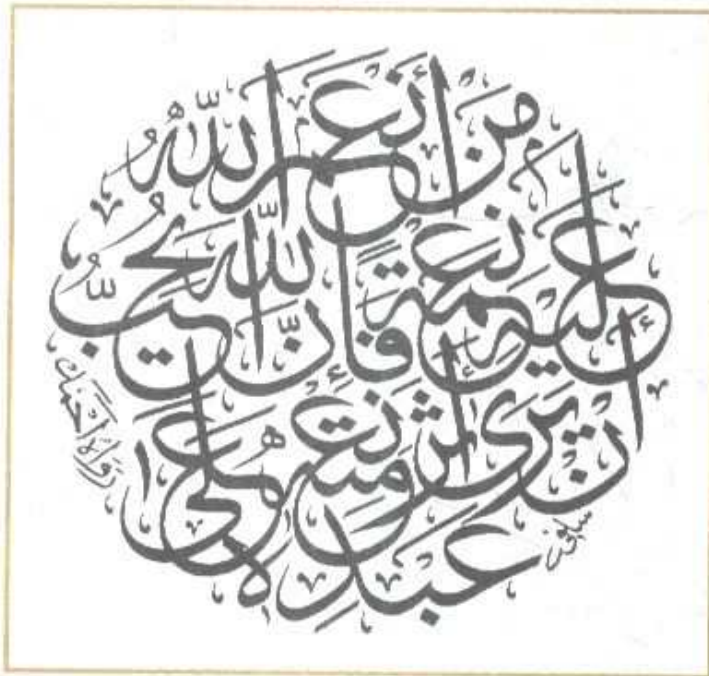 مَنْ أَنْعَمَ اللّٰهُ
عَلَيْهِ نِعْمَةً فَإِنَّ اللّٰهَ يُحِبُّ
أَنْ يَرَى أَثَرَ نِعْمَتِهِ عَلَى
عَبْدِهِ
رَوَاهُ أَحْمَد